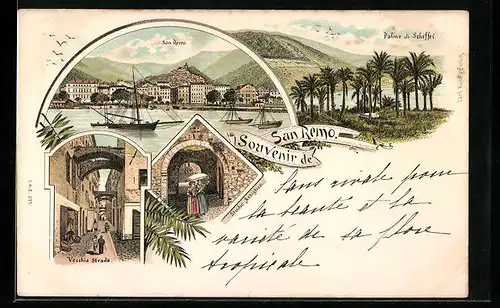 San Remo
Palme di Scheffel.
Souvenir de
San Remo.
Vecchia Strada.
Sans rivale pour
la beauté et la
varieté de sa flore
tropicale